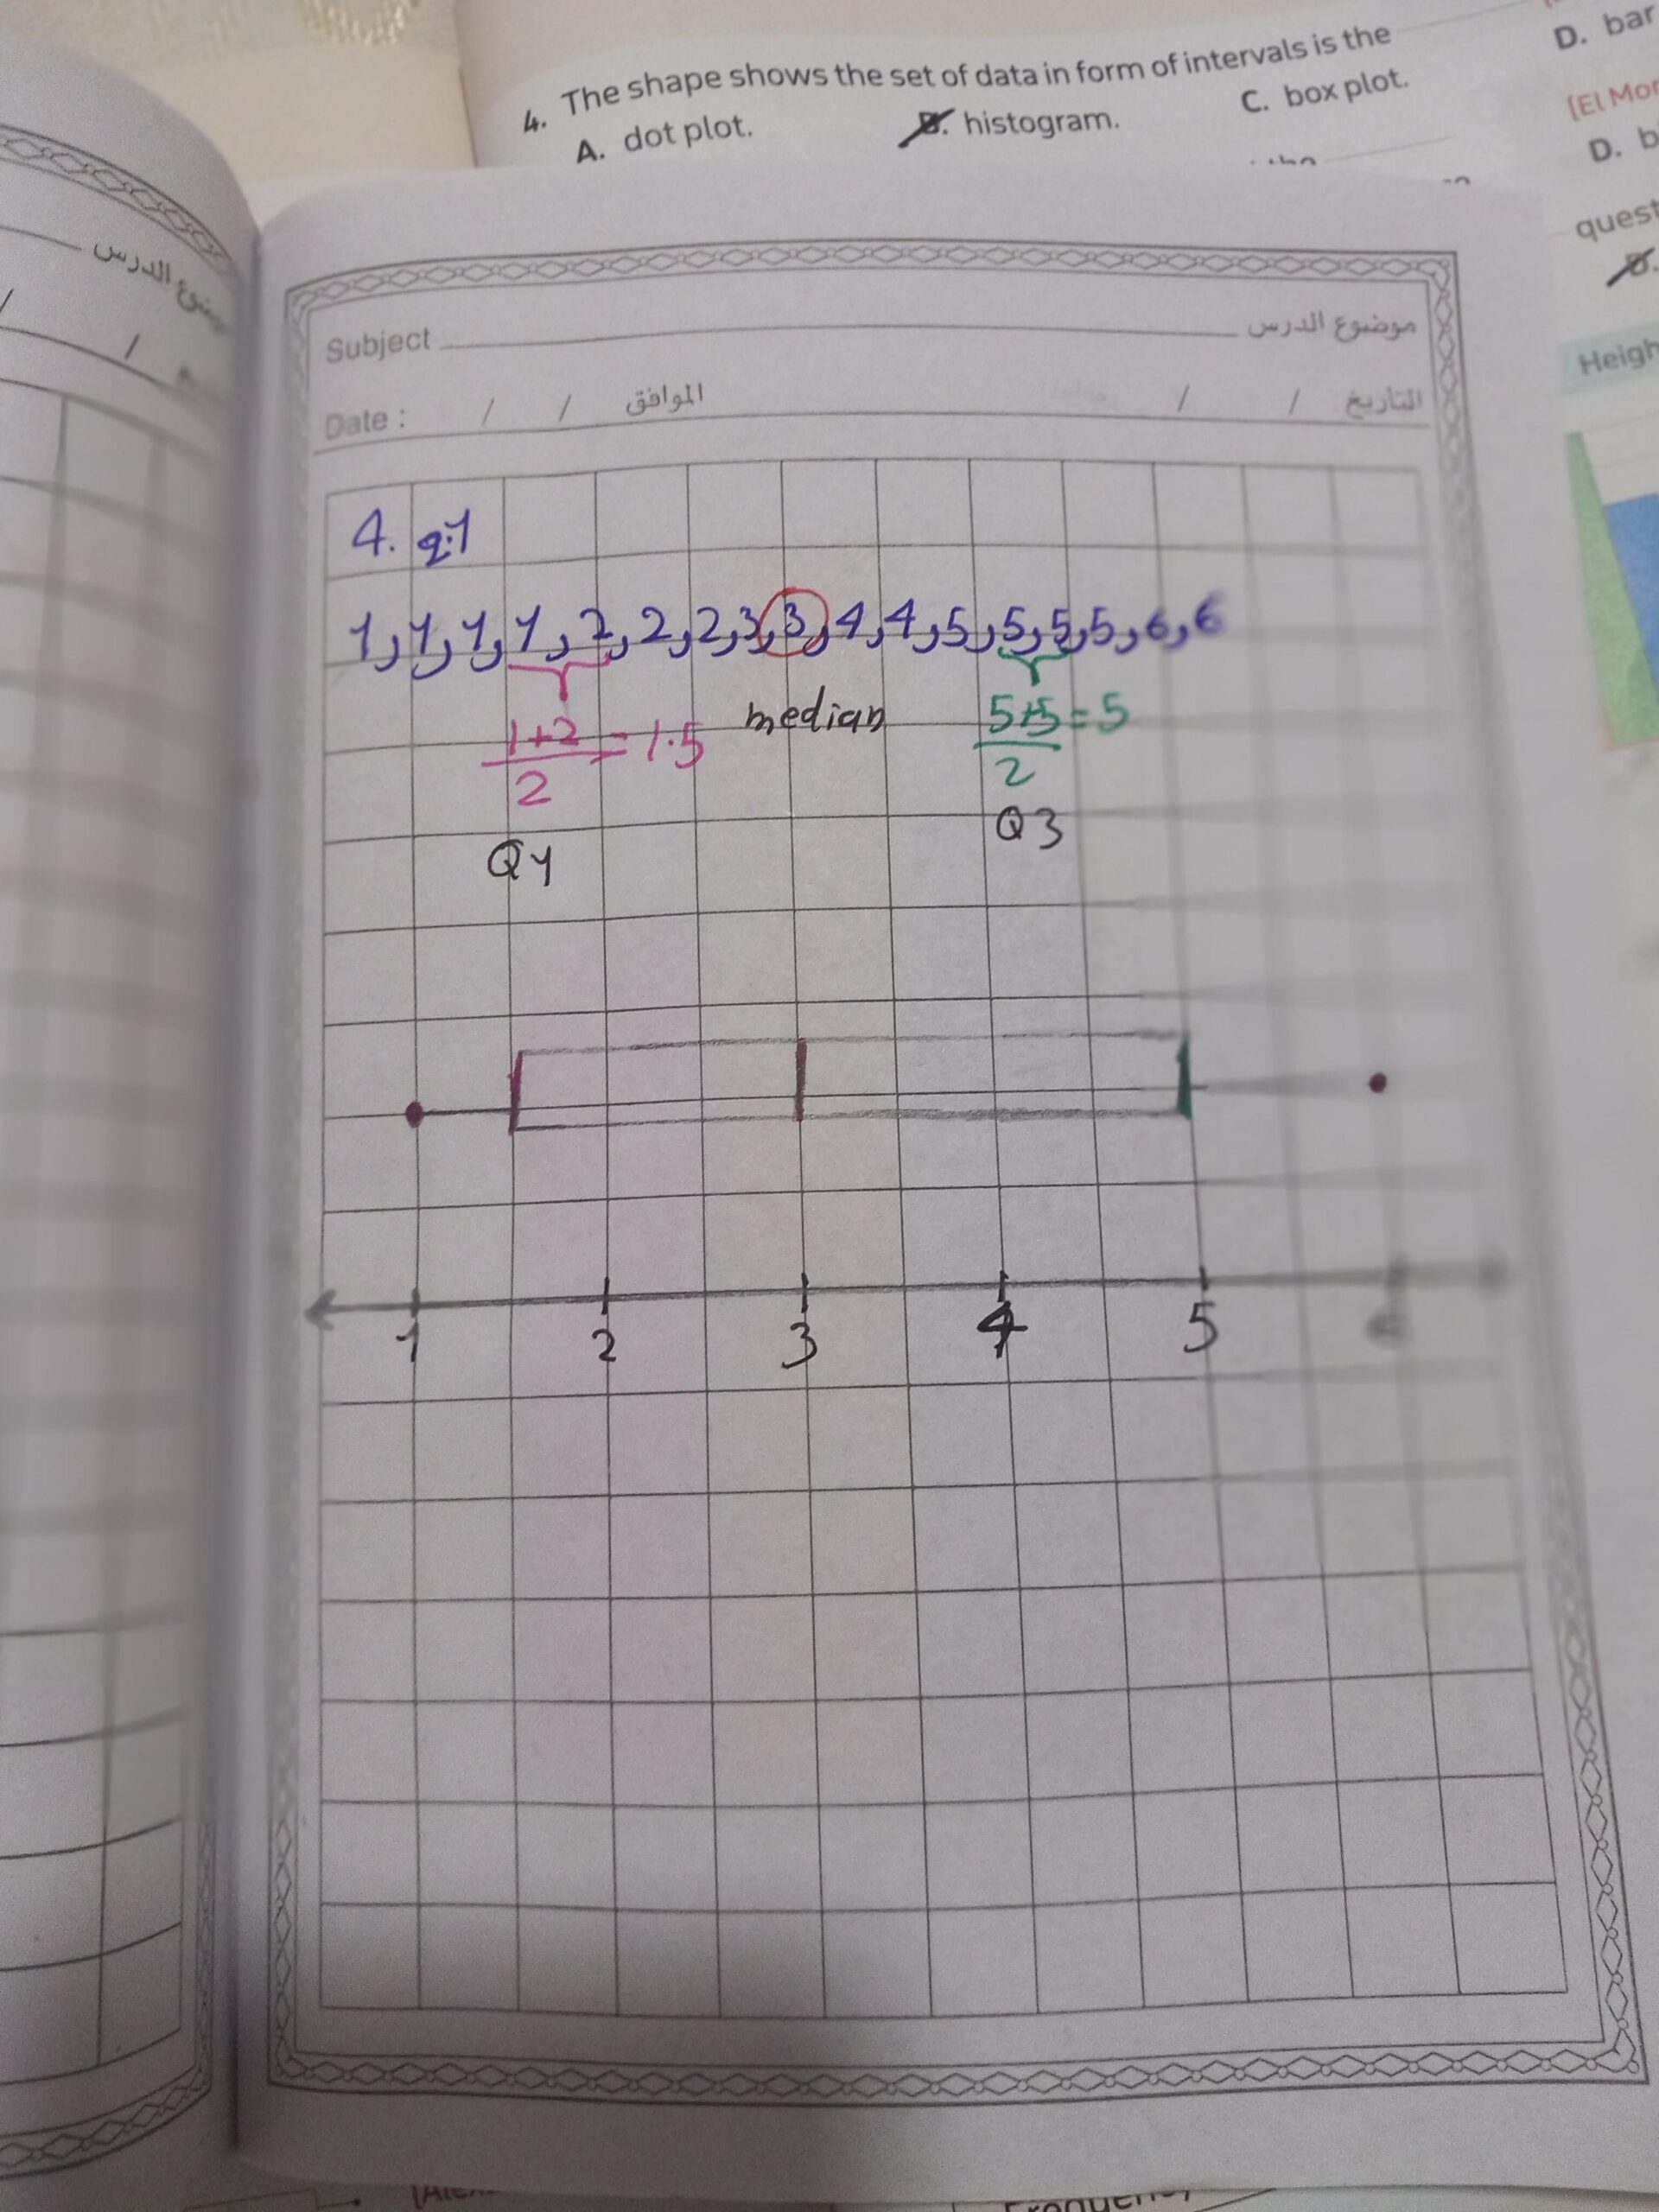 4. The shape shows the set of data in form of intervals is the
A. dot plot. B. histogram. C. box plot. D. bar
[El Mon
D. b
quest
Heigh
موضوع الدرس
Subject موضوع الدرس
Date : / / الموافق / / التاريخ
4. q:1
1,1,1,1,2,2,2,3,3,4,4,5,5,5,5,6,6
1+2/2 = 1.5 median 5+5/2 = 5
Q1 Q3
1 2 3 4 5 6